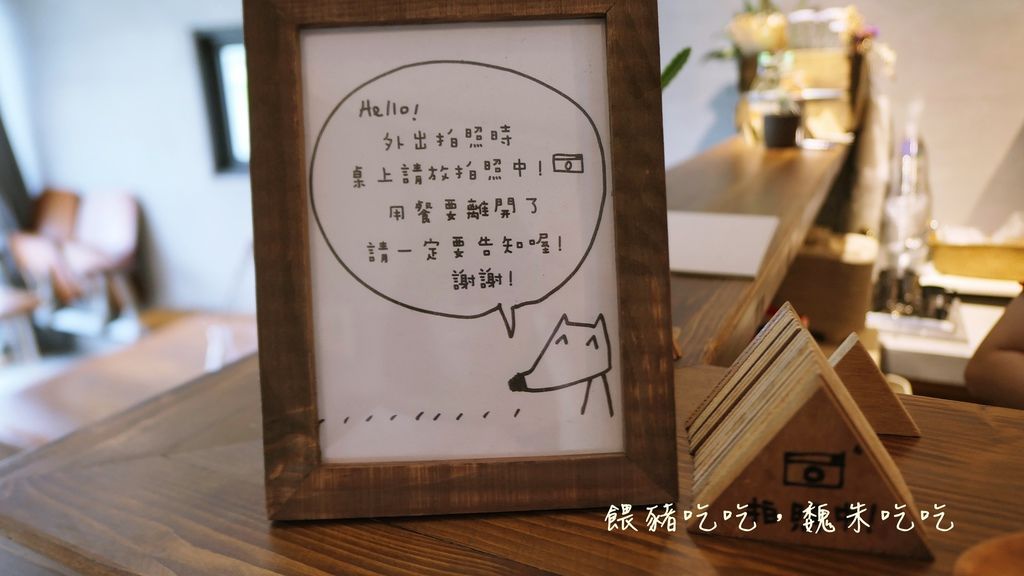 Hello!
外出拍照時
桌上請放拍照中!
用餐要離開了
請一定要告知喔!
謝謝!
拍照中!
餵豬吃吃，魏朱吃吃